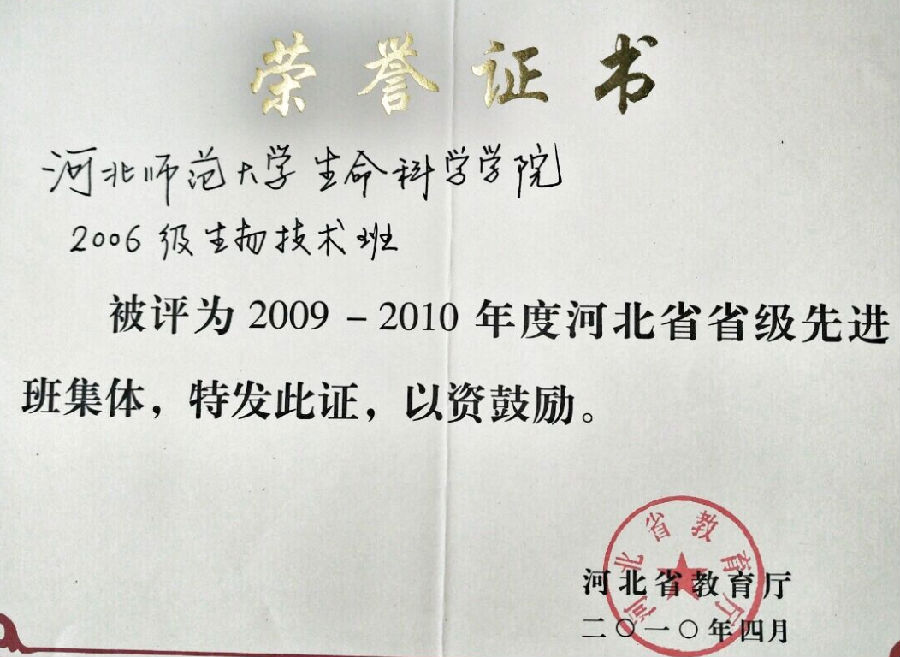 荣誉证书
河北师范大学生命科学学院
2006级生物技术班
被评为2009-2010年度河北省省级先进
班集体，特发此证，以资鼓励。
河北省教育厅
河北省教育厅
二〇一〇年四月